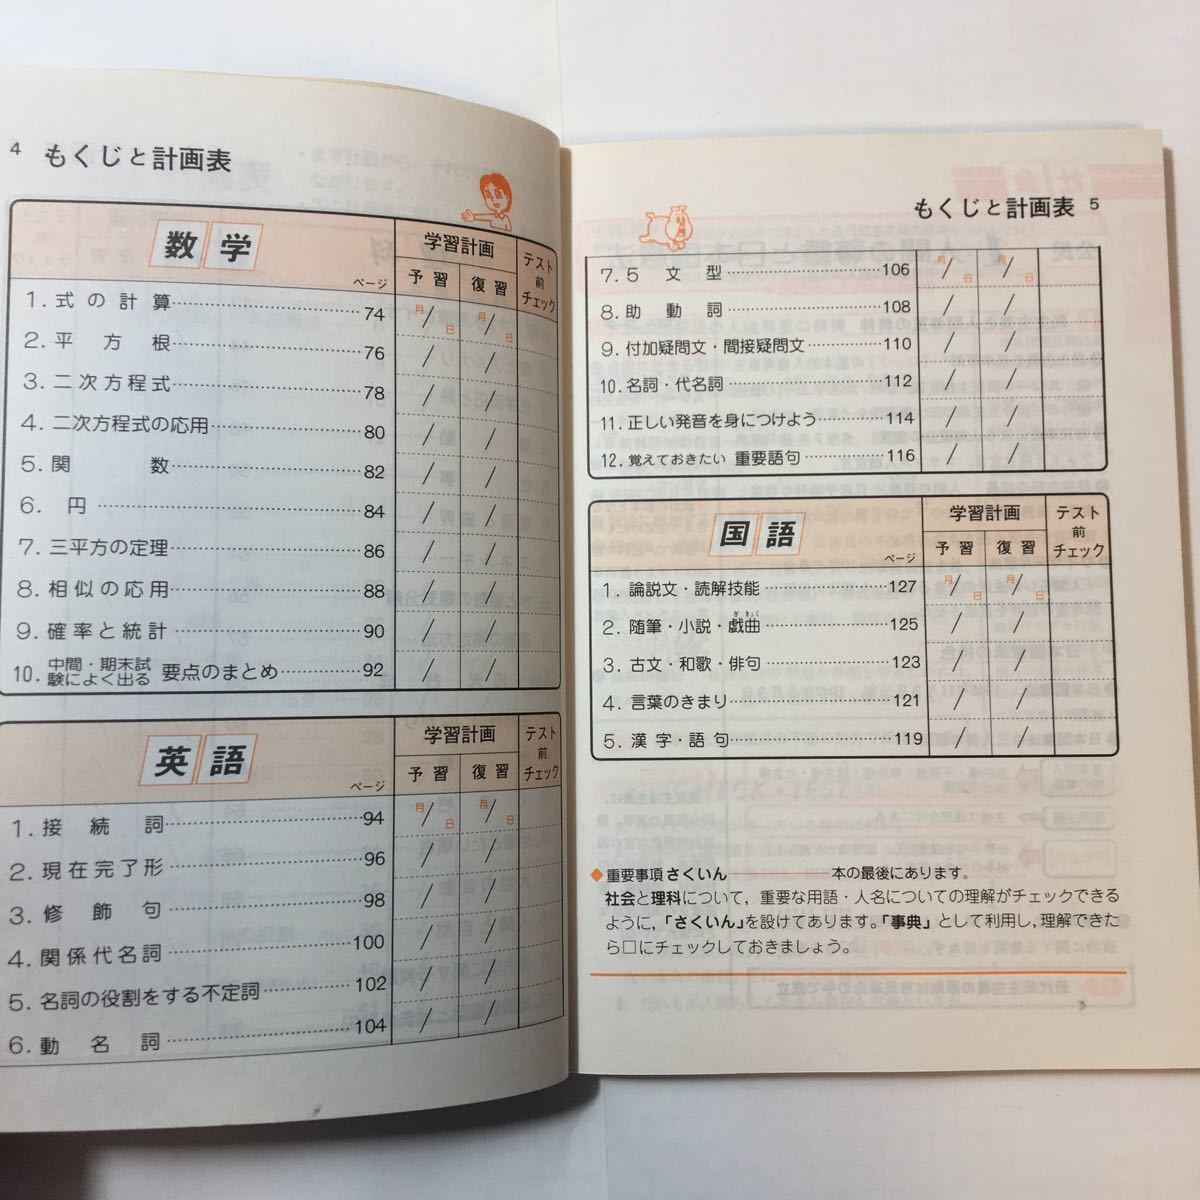 4 もくじと計画表
数学
学習計画
テスト前チェック
ページ
予習 復習
1. 式の計算 74 月/日 月/日
2. 平方根 76 /  /
3. 二次方程式 78 /  /
4. 二次方程式の応用 80 /  /
5. 関数 82 /  /
6. 円 84 /  /
7. 三平方の定理 86 /  /
8. 相似の応用 88 /  /
9. 確率と統計 90 /  /
10. 中間・期末試験によく出る 要点のまとめ 92 /  /
英語
学習計画
テスト前チェック
ページ
予習 復習
1. 接続詞 94 月/日 月/日
2. 現在完了形 96 /  /
3. 修飾句 98 /  /
4. 関係代名詞 100 /  /
5. 名詞の役割をする不定詞 102 /  /
6. 動名詞 104 /  /
もくじと計画表 5
7. 5文型 106 月/日 月/日
8. 助動詞 108 /  /
9. 付加疑問文・間接疑問文 110 /  /
10. 名詞・代名詞 112 /  /
11. 正しい発音を身につけよう 114 /  /
12. 覚えておきたい 重要語句 116 /  /
国語
学習計画
テスト前チェック
ページ
予習 復習
1. 論説文・読解技能 127 月/日 月/日
2. 随筆・小説・戯曲 125 /  /
ぎきょく
3. 古文・和歌・俳句 123 /  /
4. 言葉のきまり 121 /  /
5. 漢字・語句 119 /  /
◆重要事項さくいん 本の最後にあります。
社会と理科について，重要な用語・人名についての理解がチェックできる
ように，「さくいん」を設けてあります。「事典」として利用し，理解できた
ら□にチェックしておきましょう。